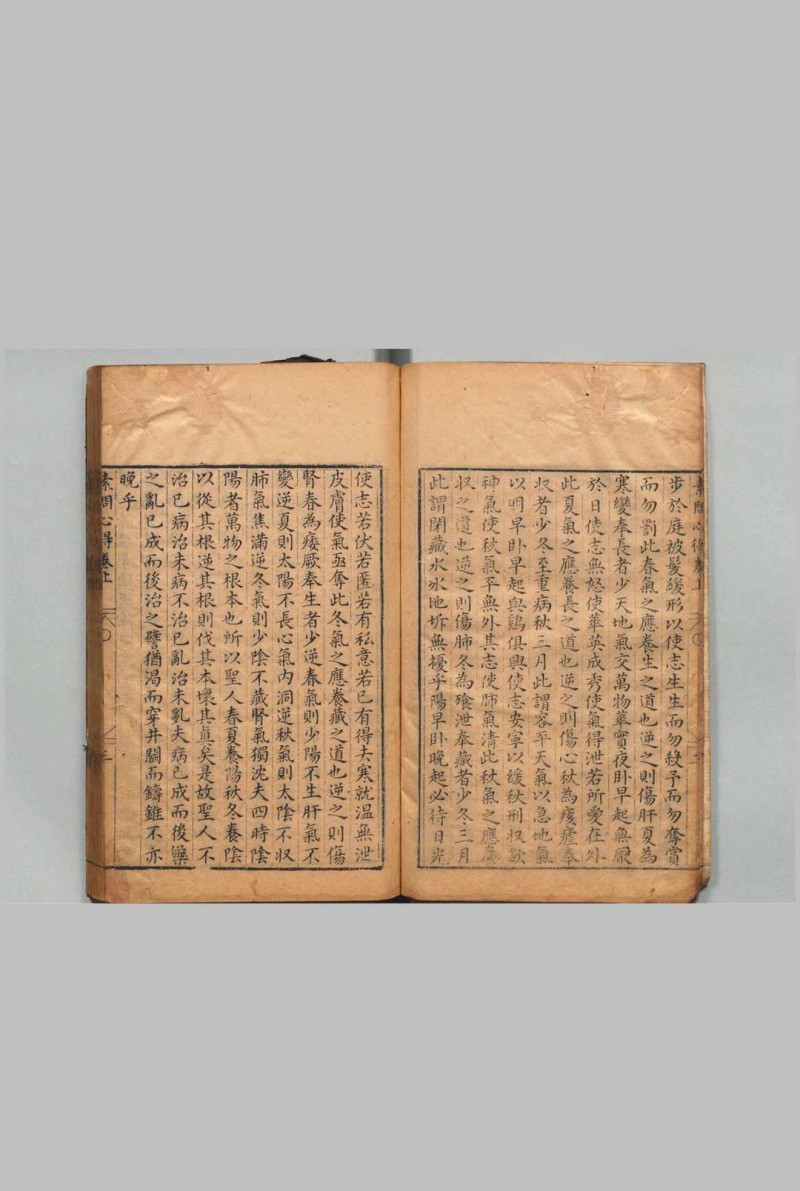 素問心得卷上
步於庭被髮緩形以使志生生而勿殺予而勿奪賞
而勿罰此春氣之應養生之道也逆之則傷肝夏為
寒變奉長者少天地氣交萬物華實夜卧早起無厭
於日使志無怒使華英成秀使氣得泄若所愛在外
此夏氣之應養長之道也逆之則傷心秋為痎瘧奉
収者少冬至重病秋三月此謂容平天氣以急地氣
以明早卧早起與鷄俱興使志安寧以緩秋刑収歛
神氣使秋氣平無外其志使肺氣清此秋氣之應養
収之道也逆之則傷肺冬為飱泄奉藏者少冬三月
此謂閉藏水氷地坼無擾乎陽早卧晚起必待日光
使志若伏若匿若有私意若已有得去寒就温無泄
皮膚使氣亟奪此冬氣之應養藏之道也逆之則傷
腎春為痿厥奉生者少逆春氣則少陽不生肝氣不
變逆夏則太陽不長心氣內洞逆秋氣則太陰不収
肺氣焦滿逆冬氣則少陰不藏腎氣獨沈夫四時陰
陽者萬物之根本也所以聖人春夏養陽秋冬養陰
以從其根逆其根則伐其本壞其真矣是故聖人不
治已病治未病不治已亂治未亂夫病已成而後藥
之亂已成而後治之譬猶渴而穿井鬬而鑄錐不亦
晚乎
素問心得卷上
三